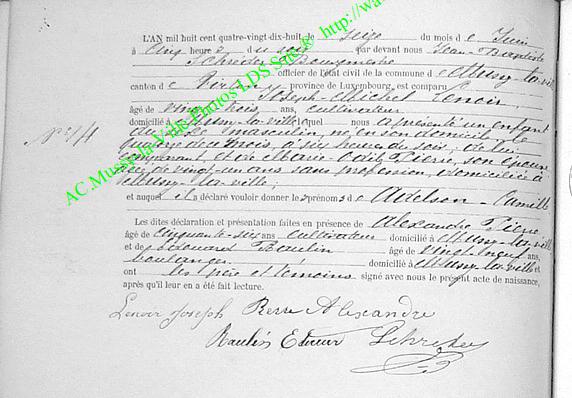 L'AN mil huit cent quatre-vingt dix-huit, le Seize du mois de Juin
à Cinq heures du soir par devant nous Jean-Baptiste
Schréder Bourgmestre
officier de l'état civil de la commune de Mussy-la-ville
canton de Virton province de Luxembourg, est comparu
Joseph-Michel Lenoir,
âgé de vingt-trois, ans, cultivateur
domicilié à Mussy-la-ville lequel nous a présenté un enfant
du sexe masculin, né, en son domicile le
quinze de ce mois, à six heures du soir, de lui
comparant, et de Marie-Odile Pierre, son épouse
âgée de vingt-un ans sans profession, domiciliée à
Mussy-la-ville;
et auquel il a déclaré vouloir donner les prénoms de Adelson-Camille
Les dites déclaration et présentation faites en présence de Alexandre Pierre
âgé de cinquante-six ans cultivateur domicilié à Mussy-la-ville
et de Edouard Raulin âgé de vingt-neuf ans,
boulanger domicilié à Mussy-la-ville et
ont les père et témoins signé avec nous le présent acte de naissance,
après qu'il leur en a été fait lecture.
N° 14
Lenoir Joseph Pierre Alexandre
Raulin Schréder
AC.Mussy-la-Ville-Photos LDS Site® http://wa